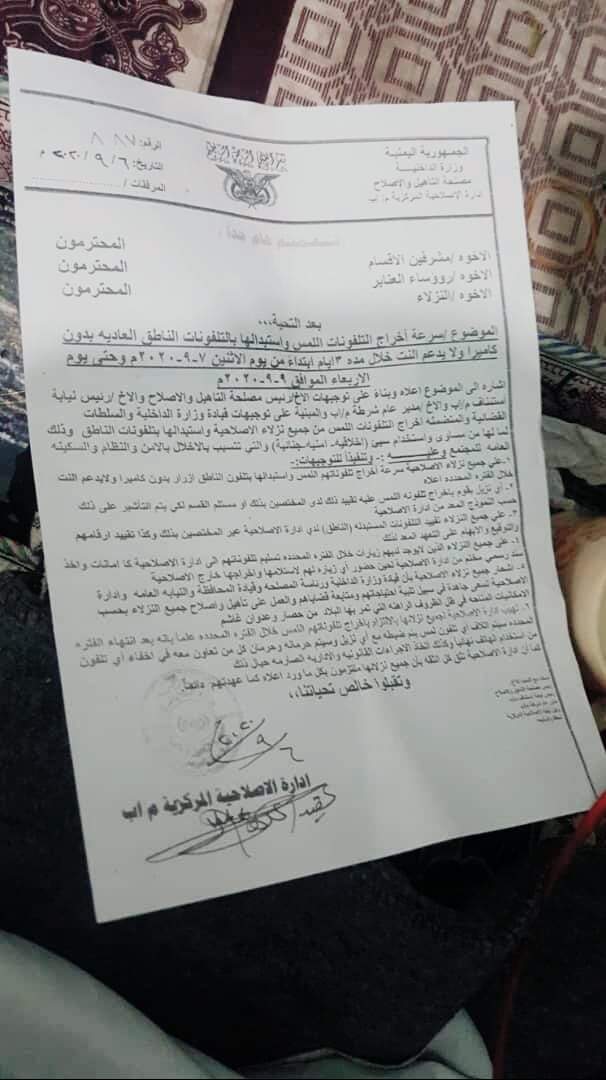 الجمهورية اليمنية
وزارة الداخلية
مصلحة التأهيل والاصلاح
ادارة الإصلاحية المركزية م/اب
الرقم: ٨٨٧
التاريخ: ٢٠٢٠/٩/٦ م
المرفقات/
الاخوه /مشرفين الاقسام المحترمون
الاخوه /رووساء العنابر المحترمون
الاخوه /النزلاء المحترمون
بعد التحية،،،
الموضوع /سرعة أخراج التلفونات اللمس واستبدالها بالتلفونات الناطق العاديه بدون
كاميرا ولا يدعم النت خلال مده ٣ايام ابتداءً من يوم الاثنين ٧-٩-٢٠٢٠م وحتى يوم
الاربعاء الموافق ٩-٩-٢٠٢٠م
اشاره الى الموضوع اعلاه وبناءً على توجيهات الاخ/رئيس مصلحة التاهيل والاصلاح والاخ /رئيس نيابة
استئناف م/اب والاخ /مدير عام شرطة م/اب والمبنية على توجيهات قيادة وزارة الداخلية والسلطات
القضائية والمتضمنه اخراج التلفونات اللمس من جميع نزلاء الاصلاحية واستبدالها بتلفونات الناطق وذلك
لما لها من مساوئ واستخدام سيئ (اخلاقيه- امنيه-جنائية) والتي تتسبب بالاخلال بالامن والنظام والسكينه
العامه للمجتمع وعليـــــه :- وتنفيذاً للتوجيهات:-
١. على جميع نزلاء الاصلاحية سرعة اخراج تلفوناتهم اللمس واستبدالها بتلفون الناطق ازرار بدون كاميرا ولايدعم النت
خلال الفتره المحدده اعلاه
٢. أي نزيل يقوم بإخراج تلفونه اللمس عليه تقييد ذلك لدى المختصين بذلك او مستلم القسم لكي يتم التأشير على ذلك
حسب النموذج المعد من ادارة الاصلاحية
٣. على جميع النزلاء تقييد التلفونات المستبدله (الناطق) لدي ادارة الاصلاحية عبر المختصين بذلك وكذا تقييد ارقامهم
والتوقيع والابهام على التعهد المعد لذلك
٤. على جميع النزلاء الذين لايوجد لديهم زيارات خلال الفتره المحدده تسليم تلفوناتهم الى ادارة الاصلاحية كا امانات واخذ
سند رسمي مختم من ادارة الاصلاحية لحين حضور أي زياره لهم لاستلامها واخراجها خارج الاصلاحية
٥. اشعار جميع نزلاء الاصلاحية بأن قيادة وزارة الداخلية ورئاسة المصلحه وقيادة المحافظة والنيابه العامه وادارة
الاصلاحية تسعى جاهدة في سبيل تلبية احتياجاتهم ومتابعة قضاياهم والعمل على تأهيل واصلاح جميع النزلاء بحسب
الامكانيات المتاحه في ظل الظروف الراهنه التي تمر بها البلاد من حصار وعدوان غاشم
٦. تهيب ادارة الاصلاحية لجميع نزلائها بالالتزام بإخراج تلفوناتهم اللمس خلال الفتره المحدده علما بانه بعد انتهاء الفتره
المحدده سيتم اتلاف أي تلفون لمس يتم ضبطه مع أي نزيل وسيتم حرمانه وحرمان كل من تعاون معه في اخفاء أي تلفون
من استخدام الهاتف نهائيا وكذلك اتخاذ الاجراءات القانونيه والاداريه الصارمه حيال ذلك
كما أن ادارة الاصلاحية تثق كل الثقه بأن جميع نزلائها ملتزمون بكل ما ورد اعلاه كما عهدتهم دائماً.
وتقبلوا خالص تحياتنا،،
٢٠٢٠/٩/٦
ادارة الاصلاحية المركزية م اب